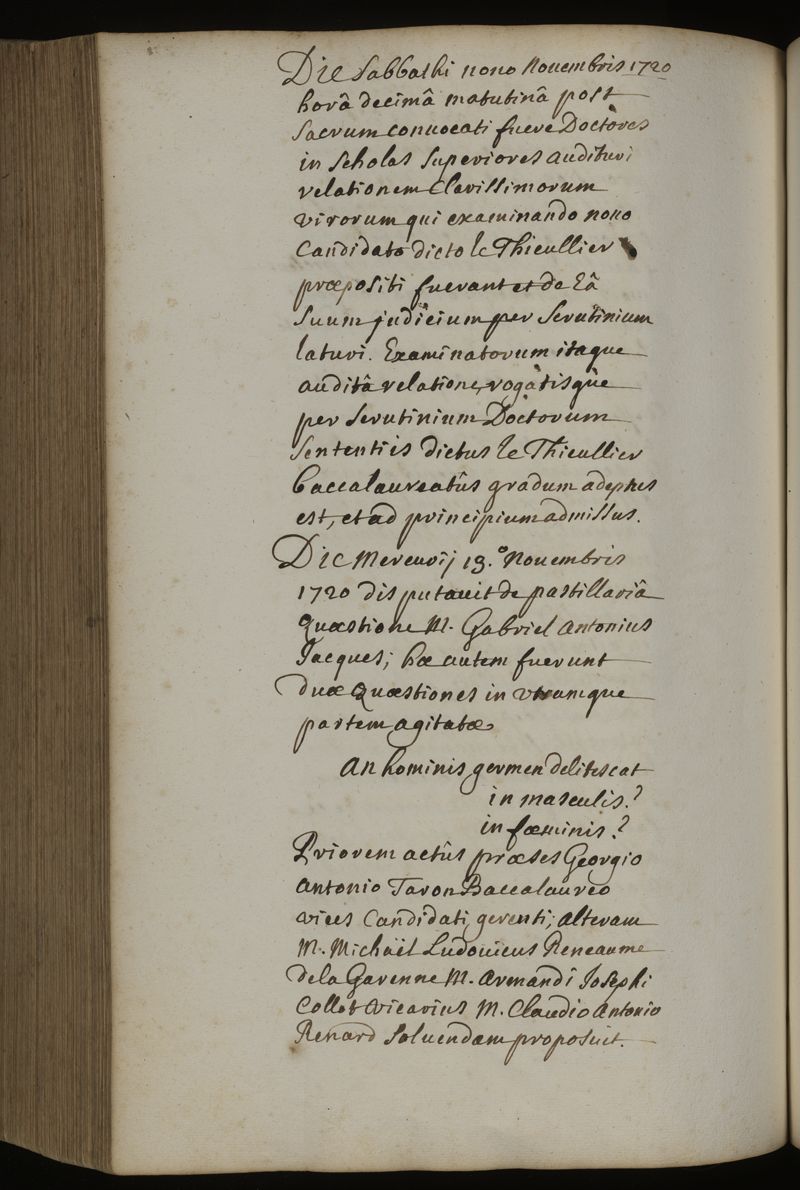 Die Sabbathi nono Novembris 1720
horâ decimâ matutinâ post
Sacrum convocati fuere Doctores
in Scholas Superiores audituri
relationem Clarissimorum
virorum qui examinando nono
Candidato dicto le Thieullier
præpositi fuerant et de Eâ
Suum judicium per Scrutinium
laturi. Examinatorum itaque
auditâ relatione, rogatisque
per Scrutinium Doctorum
Sententiis dictus le Thieullier
baccalaureatûs gradum adeptus
est, et ad principium admissus.
Die Mercurij 13.º Novembris
1720 disputavit de pastillariâ
Quæstione M. Gabriel Antonius
Jacques; hæ autem fuerunt
duæ Quæstiones in utramque
partem agitatæ
An hominis germen delitescat
in masculis?
in fæminis?
Priorem actûs præses Georgio
Antonio Taron Baccalaureo
vices Candidati gerenti; alteram
M. Michaël Ludovicus Reneaume
dela Garenne M. Armandi Josephi
Collot vicarius M. Claudio Antonio
Renard Solvendam proposuit.